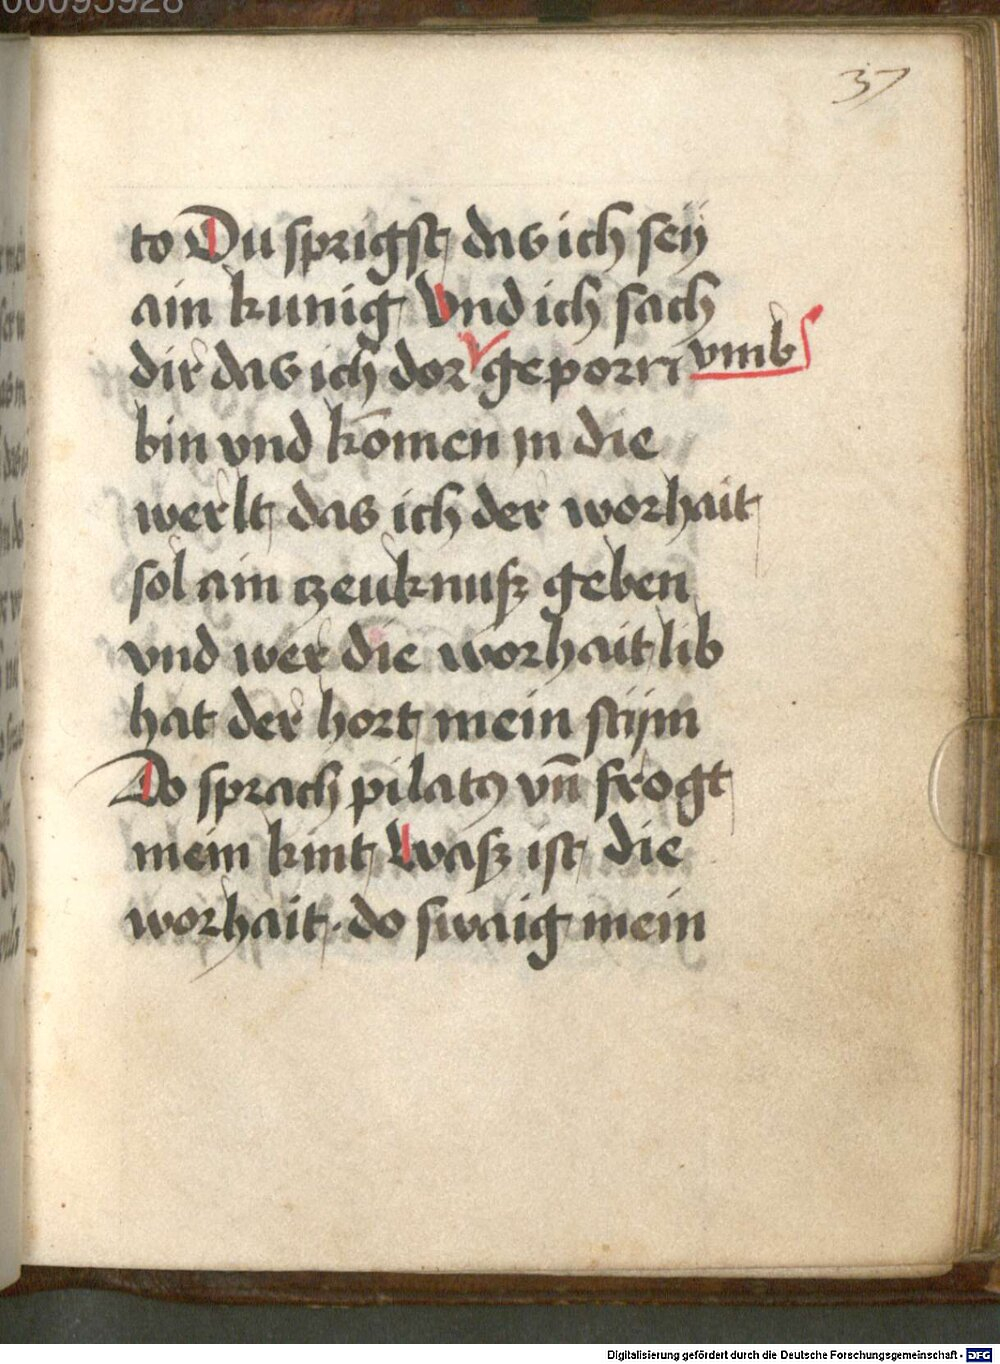 00095928
37
to Du sprigst das ich seÿ
ain kunig Vnd ich sach
dir das ich dor geporn vmb
bin vnd kōmen in die
werlt das ich der worhait
sol ain czeuknusz geben
vnd wer die worhait lib
hat der hort mein stijm
Do sprach pilatꝰ vn̄ frogt
mein kint Wasz ist die
worhait · do swaig mein
Digitalisierung gefördert durch die Deutsche Forschungsgemeinschaft - DFG